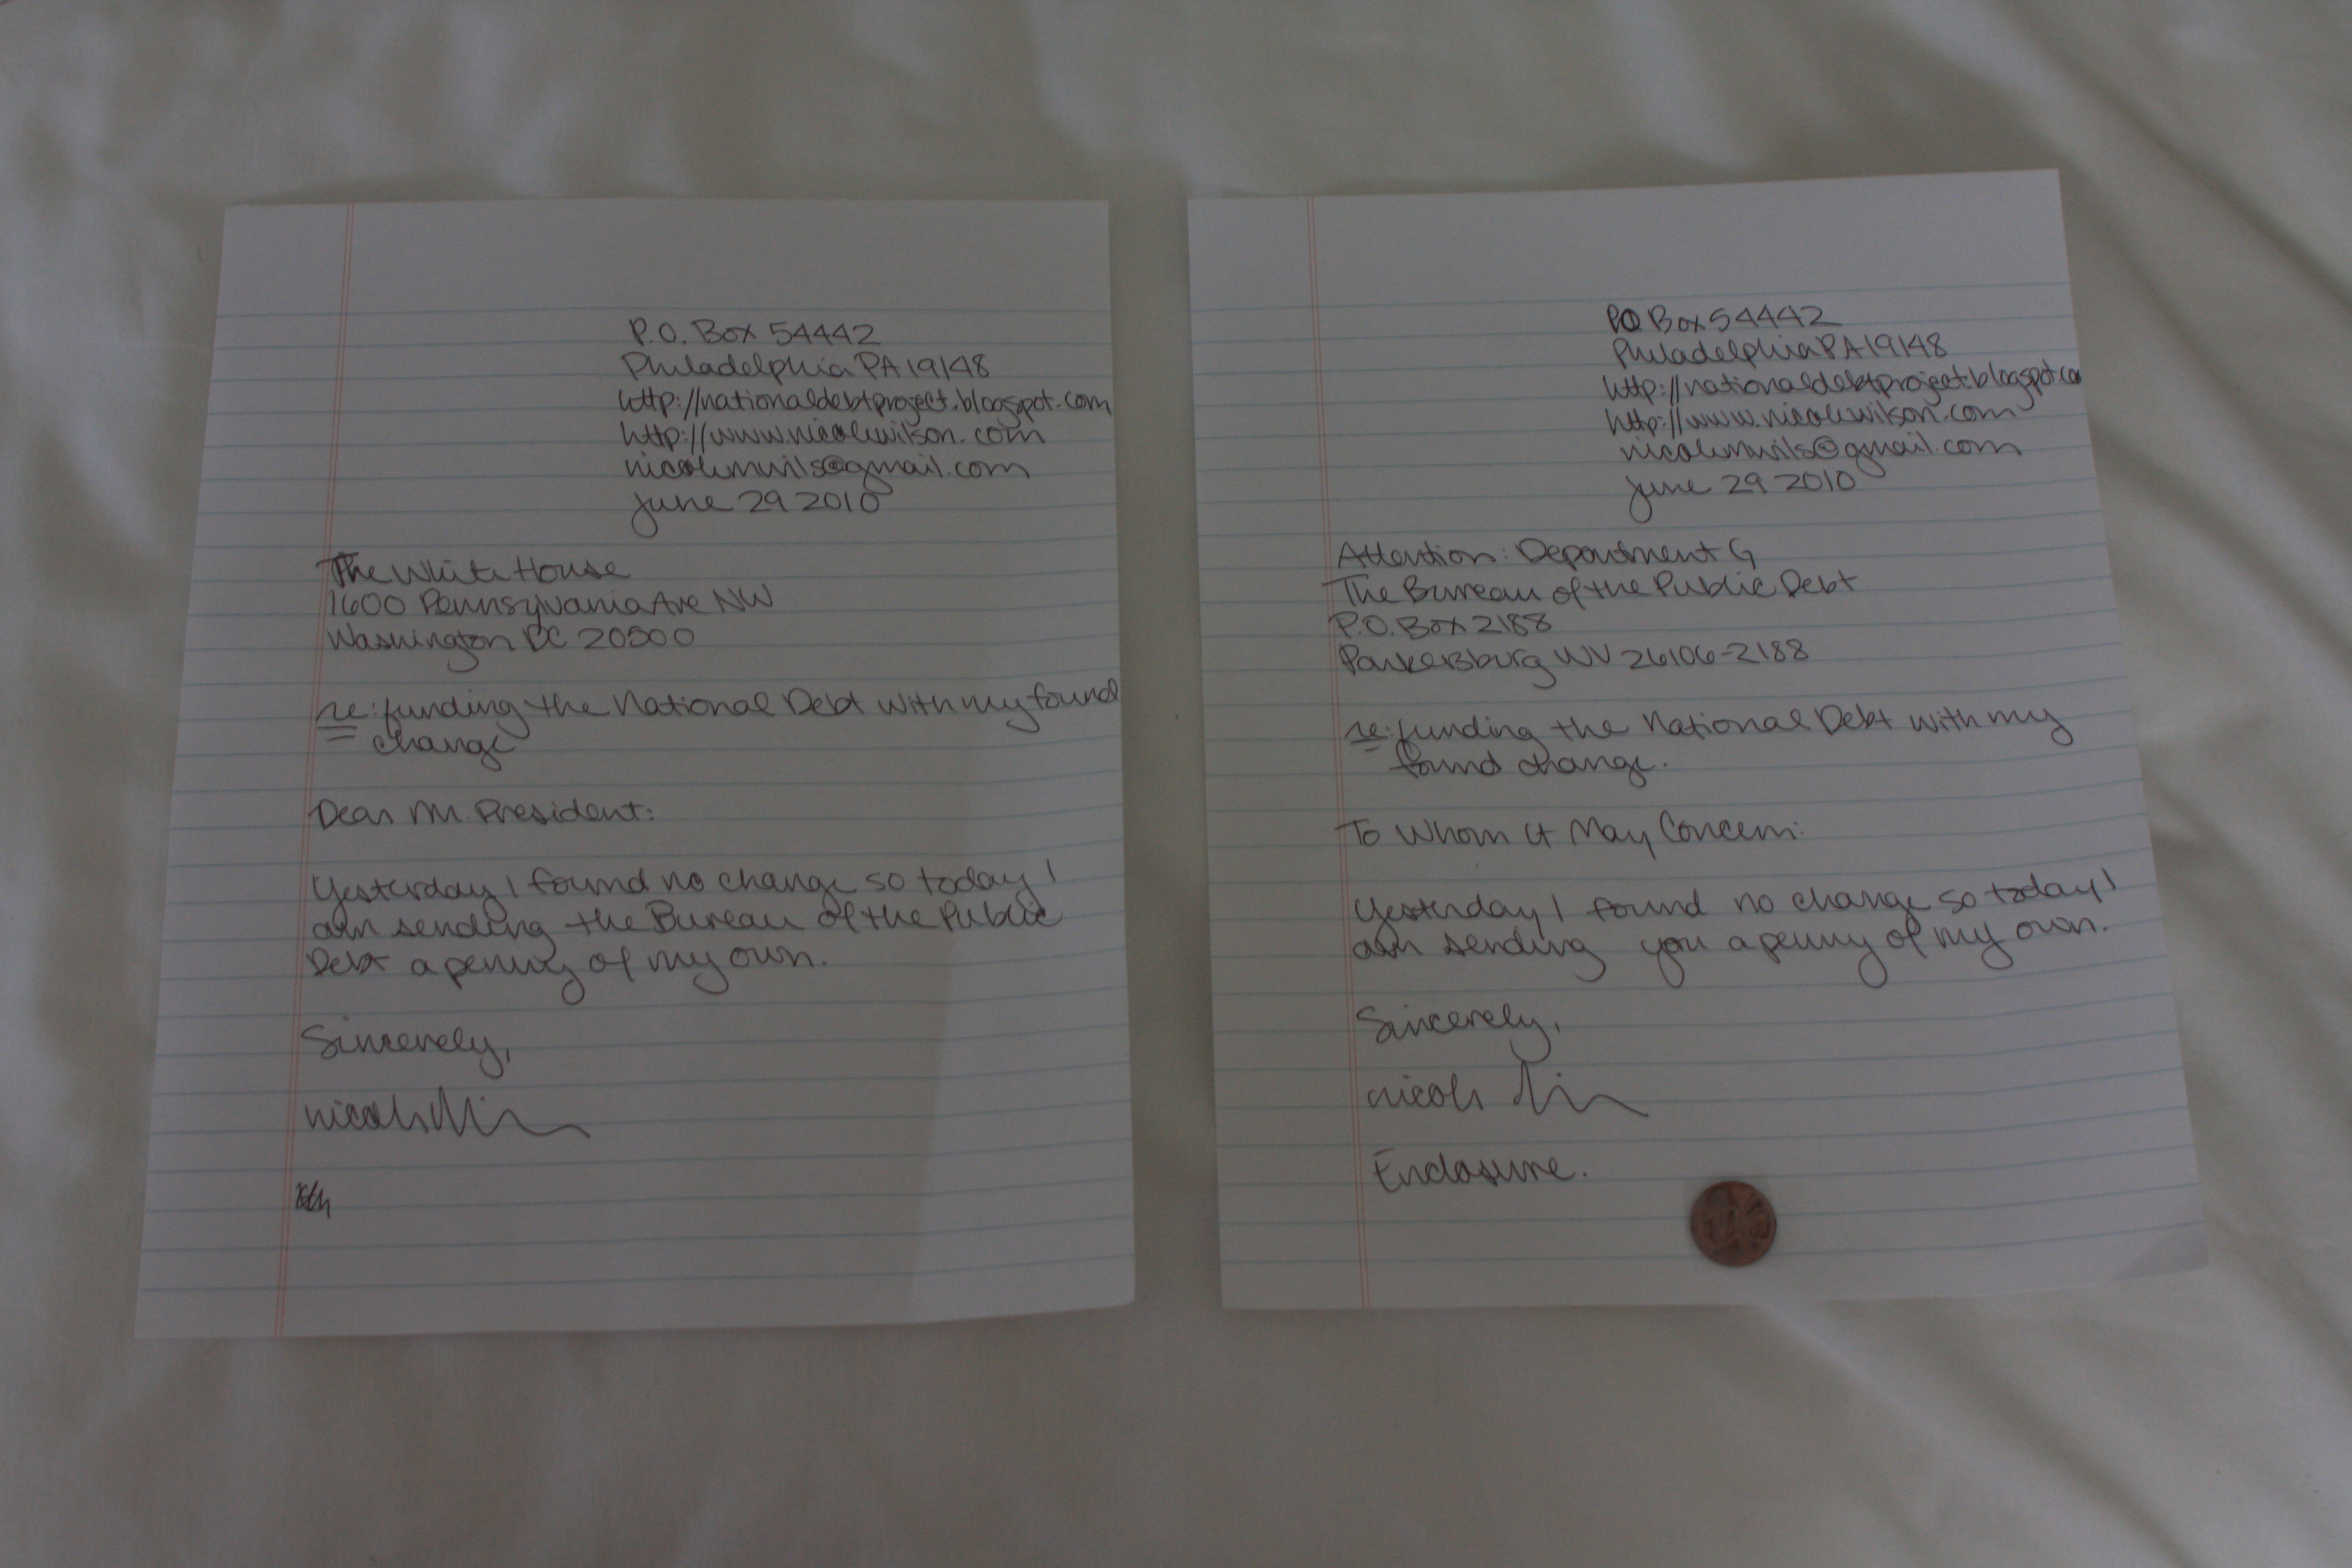 P.O. Box 54442
Philadelphia PA 19148
http://nationaldebtproject.blogspot.com
http://www.nicolewilson.com
nicolemwils@gmail.com
June 29 2010
The White House
1600 Pennsylvania Ave NW
Washington DC 20500
re: funding the National Debt with my found
change
Dear Mr. President:
Yesterday I found no change so today I
am sending the Bureau of the Public
Debt a penny of my own.
Sincerely,
nicole
PO Box 54442
Philadelphia PA 19148
http://nationaldebtproject.blogspot.com
http://www.nicolewilson.com
nicolemwils@gmail.com
June 29 2010
Attention: Department G
The Bureau of the Public Debt
P.O. Box 2188
Parkersburg WV 26106-2188
re: funding the National Debt with my
found change.
To Whom It May Concern:
Yesterday I found no change so today I
am sending you a penny of my own.
Sincerely,
nicole
Enclosure.